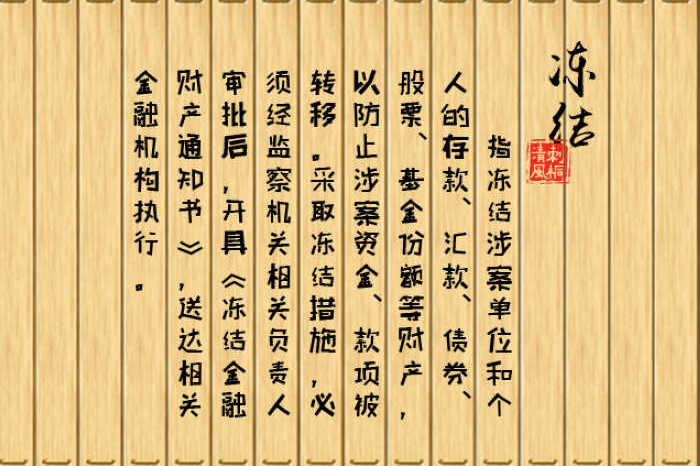 冻结
清风
刺桐
指冻结涉案单位和个
人的存款、汇款、债券、
股票、基金份额等财产,
以防止涉案资金、款项被
转移。采取冻结措施,必
须经监察机关相关负责人
审批后,开具《冻结金融
财产通知书》,送达相关
金融机构执行。